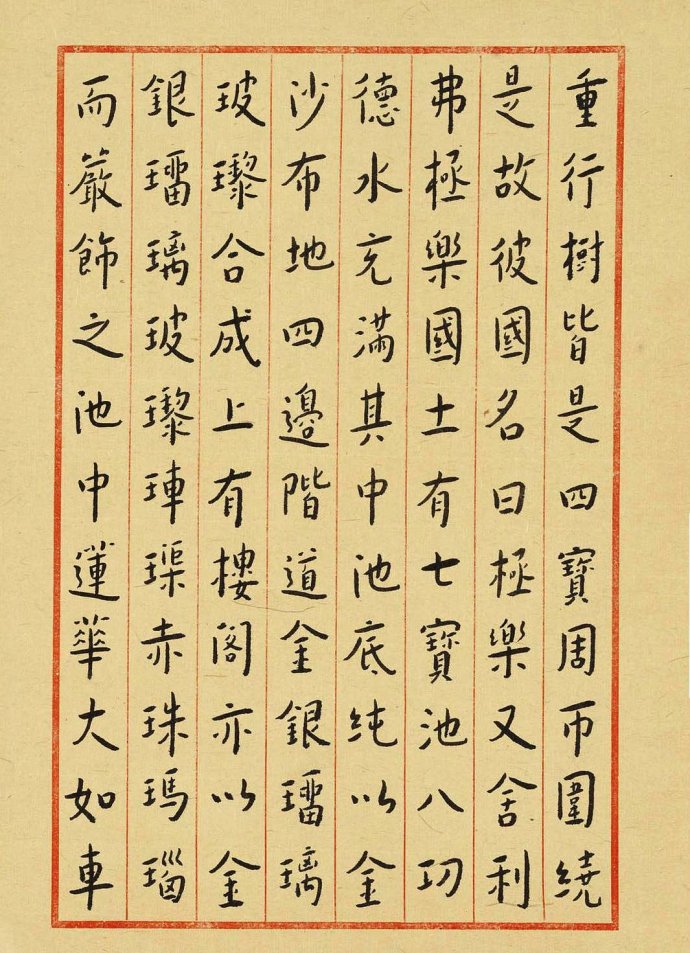 重行樹皆是四寶周帀圍繞
是故彼國名曰極樂又舍利
弗極樂國土有七寶池八功
德水充滿其中池底純以金
沙布地四邊階道金銀瑠璃
玻瓈合成上有樓閣亦以金
銀瑠璃玻瓈硨磲赤珠瑪瑙
而嚴飾之池中蓮華大如車